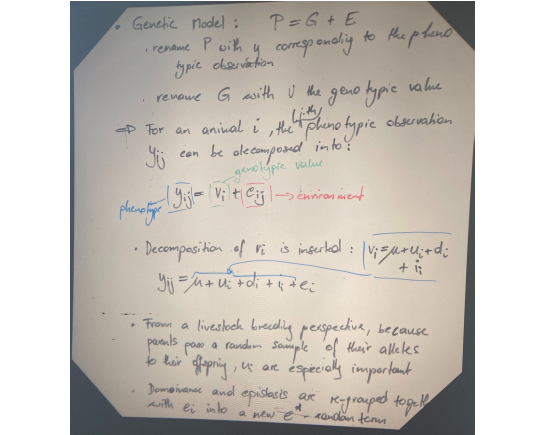 • Genetic Model : P = G + E
. rename P with y corresponding to the pheno
typic observation
. rename G with V the genotypic value
⇒ For an animal i, the j-th phenotypic observation
yij can be decomposed into :
genotypic value
phenotype ← yij = vi + eij → environment
• Decomposition of vi is inserted : vi = μ + ui + di
+ ii
yij = μ + ui + di + ii + ei
• From a livestock breeding perspective, because
parents pass a random sample of their alleles
to their offspring, ui are especially important
• Dominance and epistasis are re-grouped together
with ei into a new e* - random term